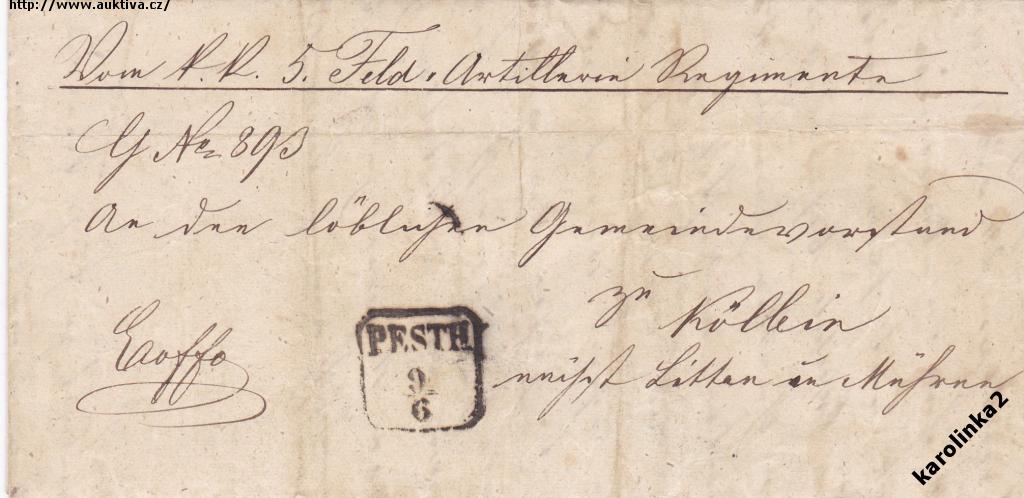 http://www.auktiva.cz/
Vom k.k. 5. Feld-Artillerie Regimente
G No 893
An den löblichen Gemeindevorstand
zu
Köllein
nächst Littau in Mähren
PESTH
9/6
karolinka2